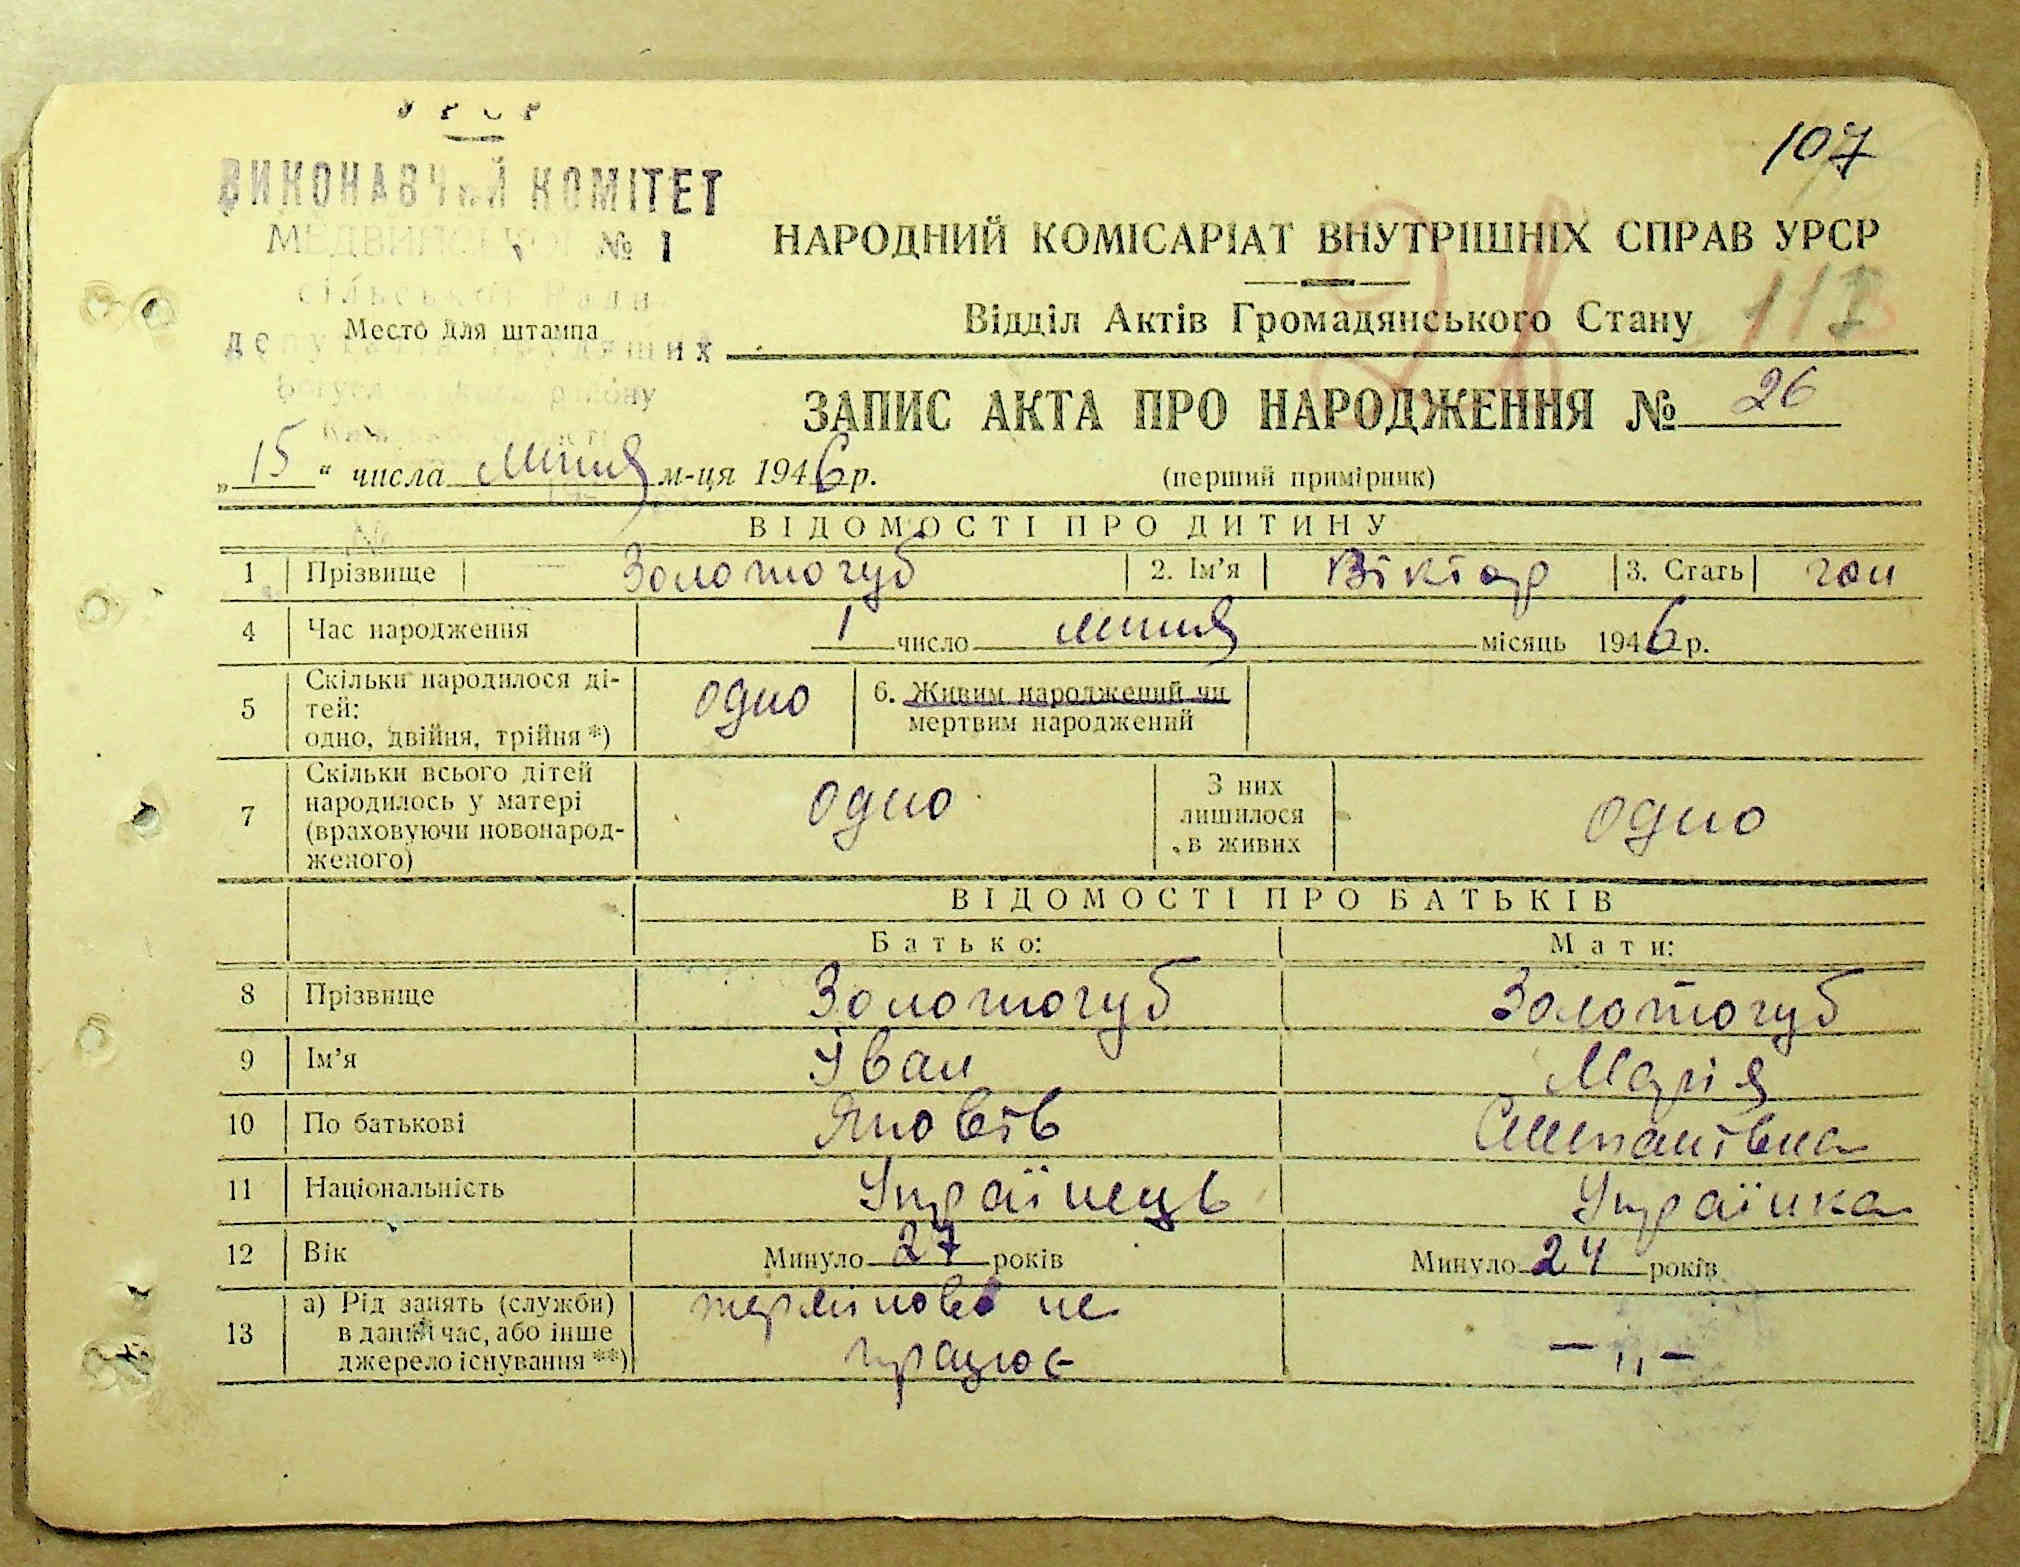 107
ВИКОНАВЧИЙ КОМІТЕТ
№ 1
НАРОДНИЙ КОМІСАРІАТ ВНУТРІШНІХ СПРАВ УРСР
сільської Ради
Відділ Актів Громадянського Стану 117
Место для штампа
району
ЗАПИС АКТА ПРО НАРОДЖЕННЯ № 26
„15“ числа липня м-ця 1946 р. (перший примірник)
№
ВІДОМОСТІ ПРО ДИТИНУ
1 Прізвище Золотогуб 2. Ім'я Віктор 3. Стать чол
4 Час народження 1 число липня місяць 1946 р.
5 Скільки народилося ді-
тей:
одно, двійня, трійня *) одно 6. Живим народжений чи
мертвим народжений
7 Скільки всього дітей
народилось у матері
(враховуючи новонарод-
женого) одно З них
лишилося
в живих одно
ВІДОМОСТІ ПРО БАТЬКІВ
Батько: Мати:
8 Прізвище Золотогуб Золотогуб
9 Ім'я Іван Марія
10 По батькові Яковів Степанівна
11 Національність Українець Українка
12 Вік Минуло 27 років Минуло 24 років
13 а) Рід занять (служби)
в даний час, або інше
джерело існування **) не
працює — „ —